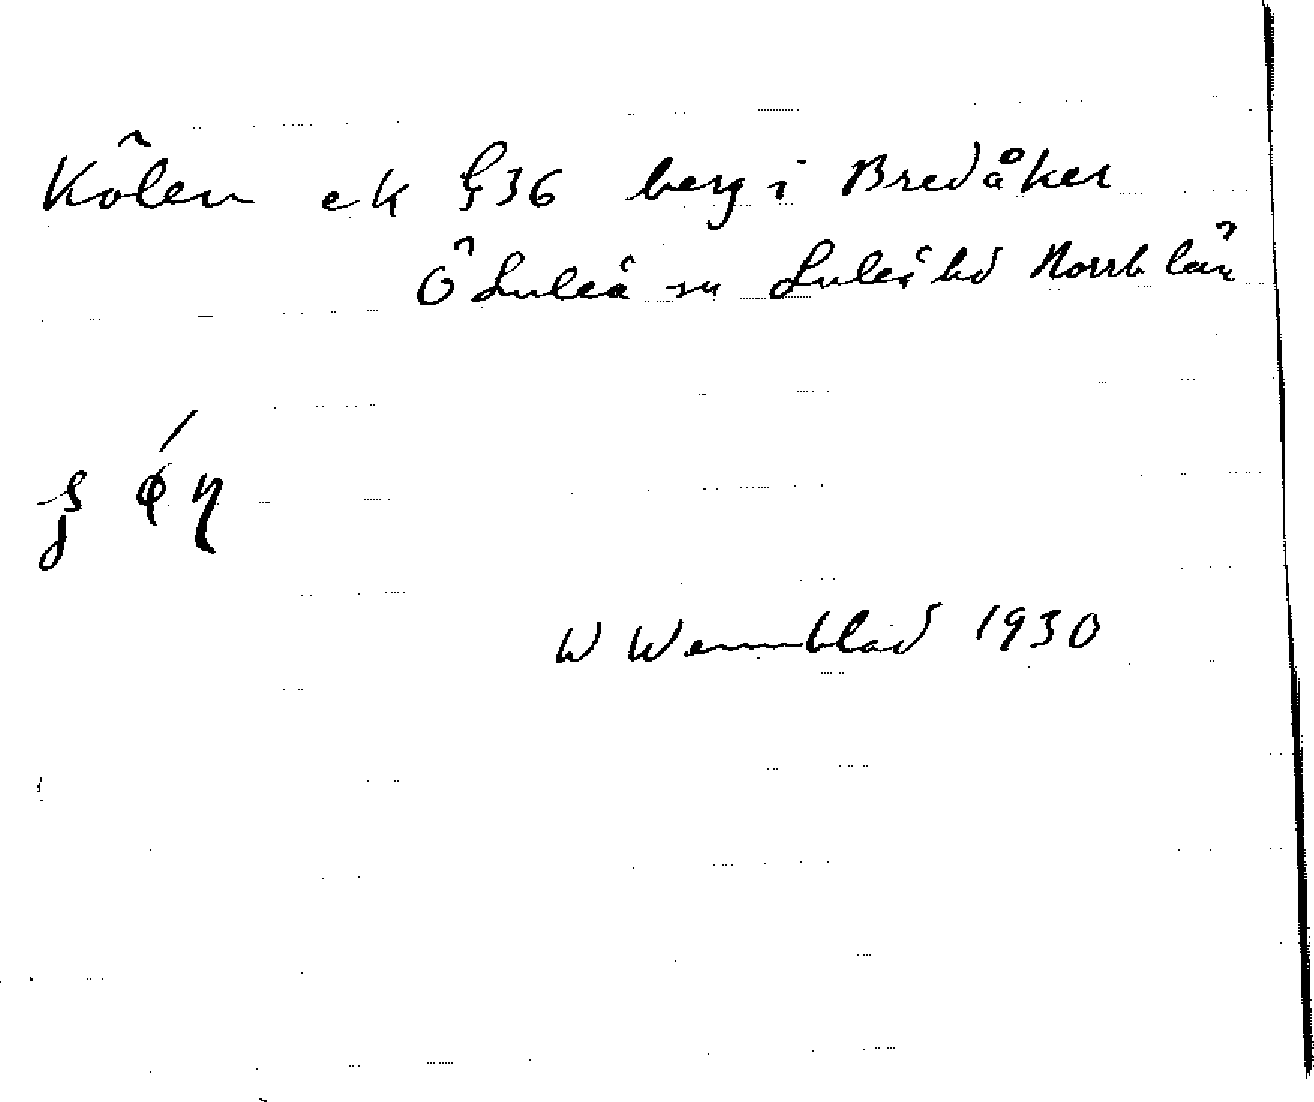 Kölen ek § 36 berg i Bredåker
Ö Luleå sn Luleå hd Norrb län
W Wennblad 1930